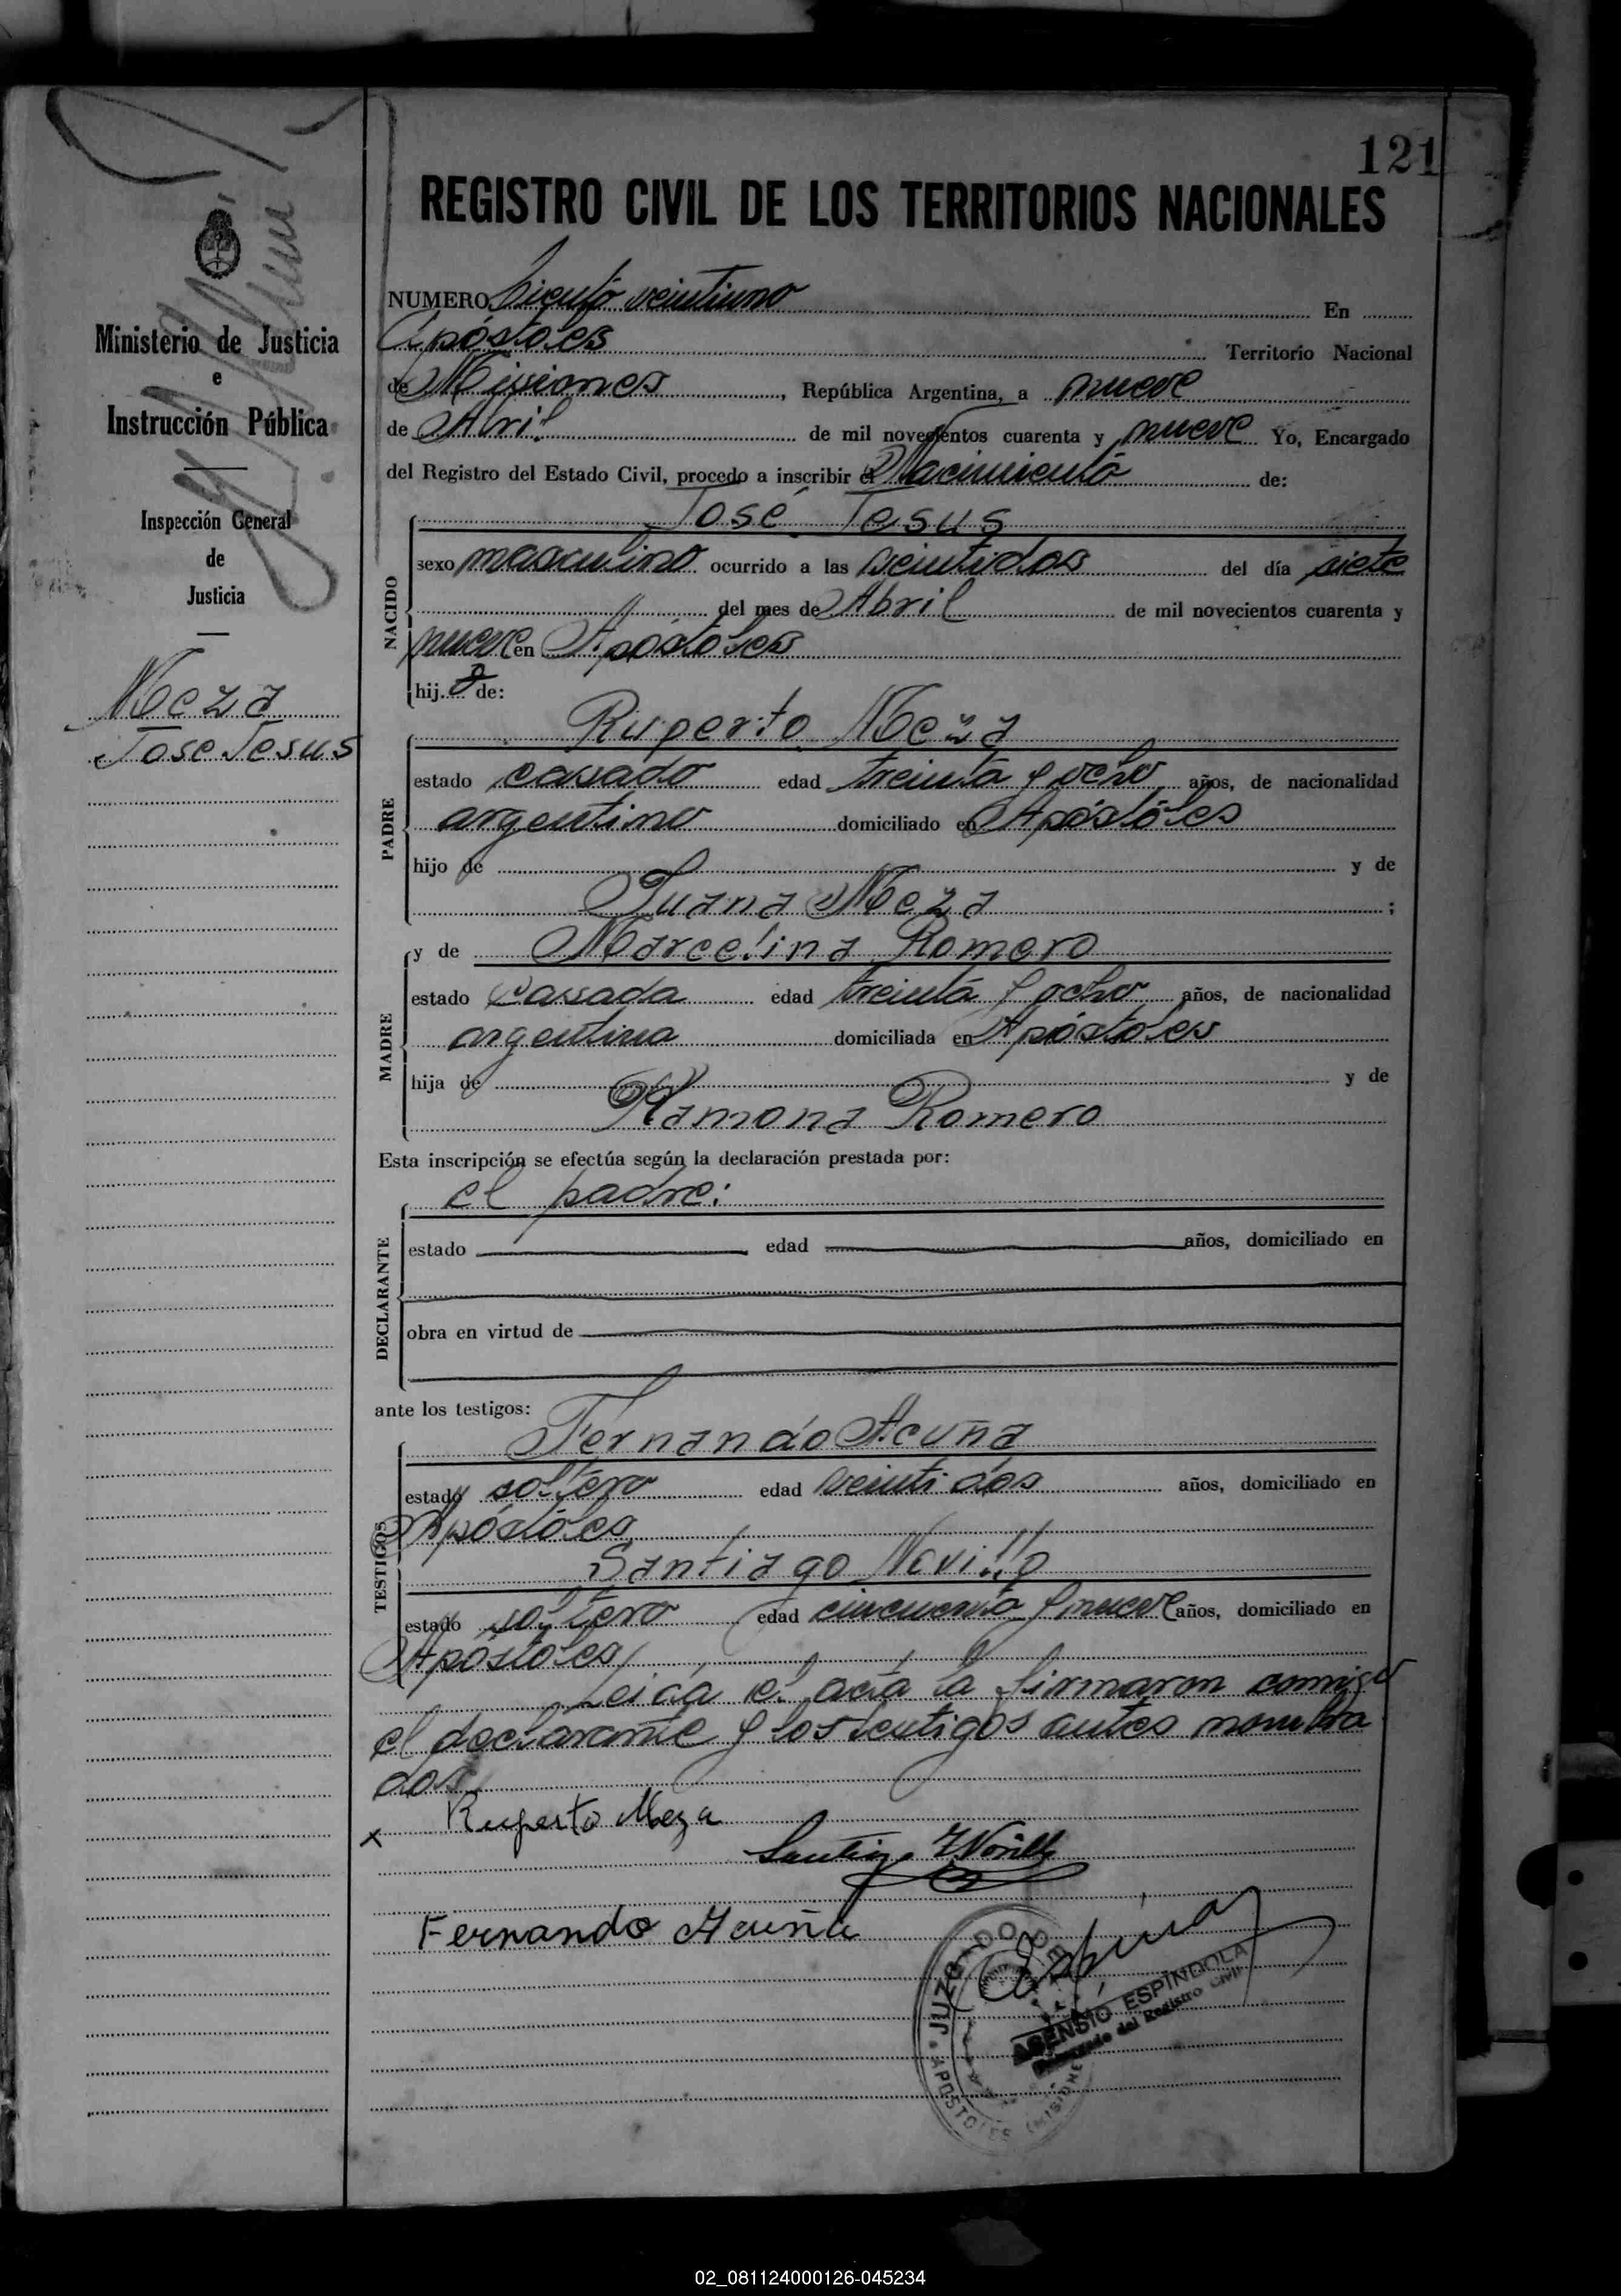 121
REGISTRO CIVIL DE LOS TERRITORIOS NACIONALES
Ministerio de Justicia
e
Instrucción Pública
Inspección General
de
Justicia
Meza
Jose Jesus
NUMERO Ciento veintiuno En
Apóstoles Territorio Nacional
de Misiones, República Argentina, a nueve
de Abril de mil novecientos cuarenta y nueve Yo, Encargado
del Registro del Estado Civil, procedo a inscribir el Nacimiento de:
José Jesus
NACIDO
sexo masculino ocurrido a las veintidos del día siete
del mes de Abril de mil novecientos cuarenta y
nueve en Apóstoles
hijo de:
Ruperto Meza
PADRE
estado casado edad treinta y ocho años, de nacionalidad
argentino domiciliado en Apóstoles
hijo de y de
Juana Meza ;
y de Marcelina Romero
MADRE
estado casada edad treinta y ocho años, de nacionalidad
argentina domiciliada en Apóstoles
hija de y de
Ramona Romero
Esta inscripción se efectúa según la declaración prestada por:
el padre:
DECLARANTE
estado edad años, domiciliado en
obra en virtud de
ante los testigos:
Fernando Acuña
TESTIGOS
estado soltero edad veintidos años, domiciliado en
Apóstoles
Santiago Novillo
estado soltero edad cincuenta y nueve años, domiciliado en
Apóstoles
Leida el acta la firmaron conmigo
el declarante y los testigos antes nombra
dos
x Ruperto Meza
Fernando Acuña
JUZGADO DE
APOSTOLES (MISIONES)
ASENSIO ESPINDOLA
Encargado del Registro Civil
02_081124000126-045234